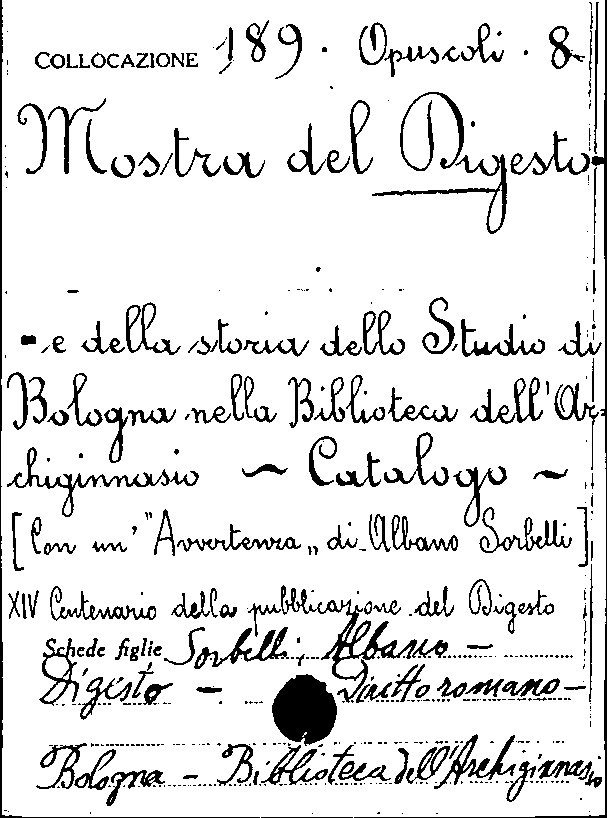 COLLOCAZIONE 189 . Opuscoli . 8
Mostra del Digesto -
- e della storia dello Studio di
Bologna nella Biblioteca dell'Ar-
chiginnasio ~ Catalogo ~
[Con un' "Avvertenza„ di Albano Sorbelli]
XIV Centenario della pubblicazione del Digesto
Schede figlie Sorbelli, Albano -
Digesto - Diritto romano -
Bologna - Biblioteca dell'Archiginnasio